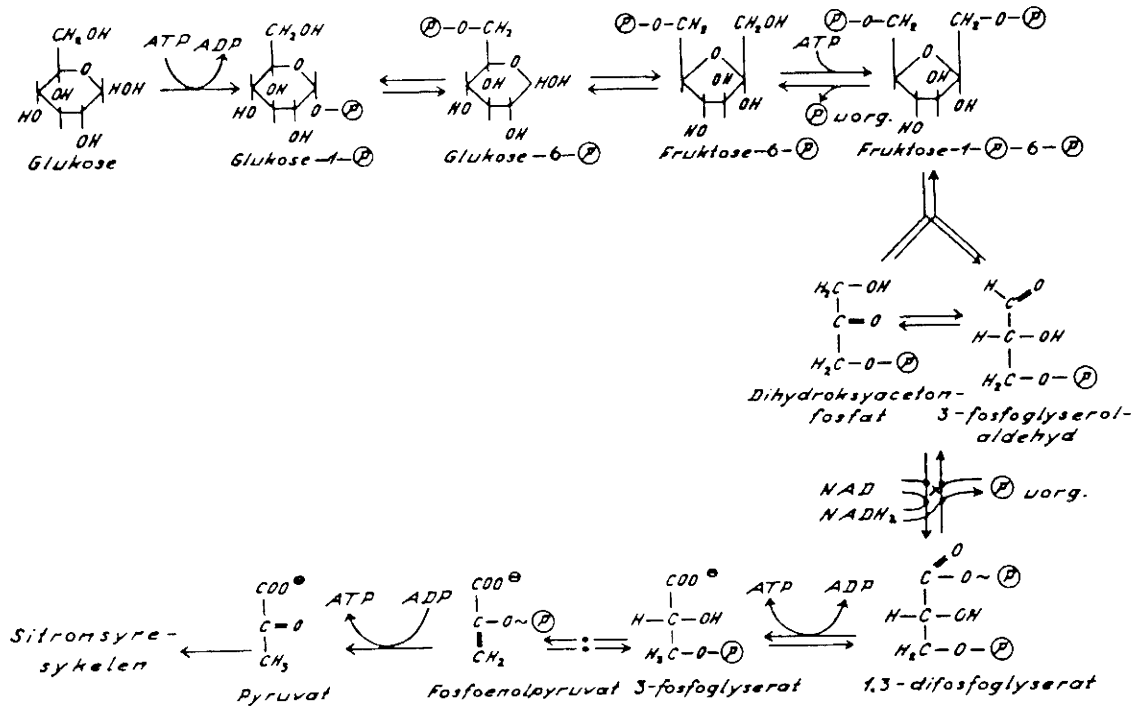 CH₂OH
O
OH
HOH
HO
OH
Glukose
ATP ADP
CH₂OH
O
OH
HO
O-Ⓟ
OH
Glukose-1-Ⓟ
Ⓟ-O-CH₂
O
OH
HOH
HO
OH
Glukose-6-Ⓟ
Ⓟ-O-CH₂ CH₂OH
O
OH
HO
OH
Fruktose-6-Ⓟ
ATP
Ⓟ uorg.
Ⓟ-O-CH₂ CH₂-O-Ⓟ
O
OH
HO
OH
Fruktose-1-Ⓟ-6-Ⓟ
H₂C-OH
C=O
H₂C-O-Ⓟ
Dihydroksyaceton-
fosfat
H O
C
H-C-OH
H₂C-O-Ⓟ
3-fosfoglyserol-
aldehyd
NAD
NADH₂
Ⓟ uorg.
O
C-O~Ⓟ
H-C-OH
H₂C-O-Ⓟ
1.3-difosfoglyserat
ATP ADP
COO⊖
H-C-OH
H₂C-O-Ⓟ
3-fosfoglyserat
COO⊖
C-O~Ⓟ
CH₂
Fosfoenolpyruvat
ATP ADP
COO⊖
C=O
CH₃
Pyruvat
Sitronsyre-
sykelen